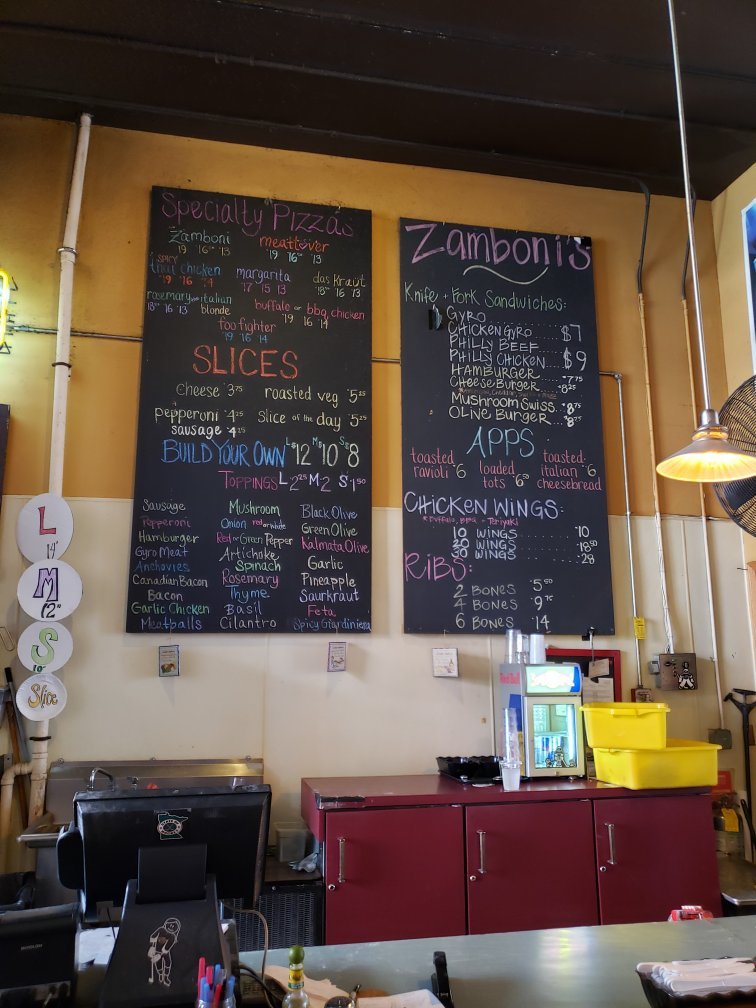 Specialty Pizzas
Zamboni meatlover
19 16 13 19 16 13
SPICY
thai chicken margarita das Kraut
19 16 14 17 15 13 18 16 13
rosemary italian blonde buffalo or bbq chicken
18 16 13 19 16 14
foo fighter
19 16 14
SLICES
Cheese $3.75 roasted veg $5.25
pepperoni $4.25 Slice of the day $5.25
sausage $4.25
BUILD YOUR OWN L $12 M $10 S $8
TOPPINGS L 2.25 M 2 S 1.50
Sausage Mushroom Black Olive
Pepperoni Onion red or white Green Olive
Hamburger Red or Green Pepper Kalmata Olive
Gyro Meat Artichoke Garlic
Anchovies Spinach Pineapple
Canadian Bacon Rosemary Saurkraut
Bacon Thyme Feta
Garlic Chicken Basil Spicy Giardiniera
Meatballs Cilantro
Zamboni's
Knife + Fork Sandwiches:
GYRO
CHICKEN GYRO $7
PHILLY BEEF
PHILLY CHICKEN $9
HAMBURGER $7.75
CHEESEBURGER $8.25
Mushroom Swiss $8.75
OLIVE BURGER $8.75
APPS
toasted ravioli $6
loaded tots $6.50
toasted italian cheesebread $6
CHICKEN WINGS:
* Buffalo, BBQ + Teriyaki
10 WINGS $10
20 WINGS $18.50
30 WINGS $28
RIBS:
2 BONES $5.50
4 BONES $9.75
6 BONES $14
L
14"
M
12"
S
10"
Slice
Red Bull